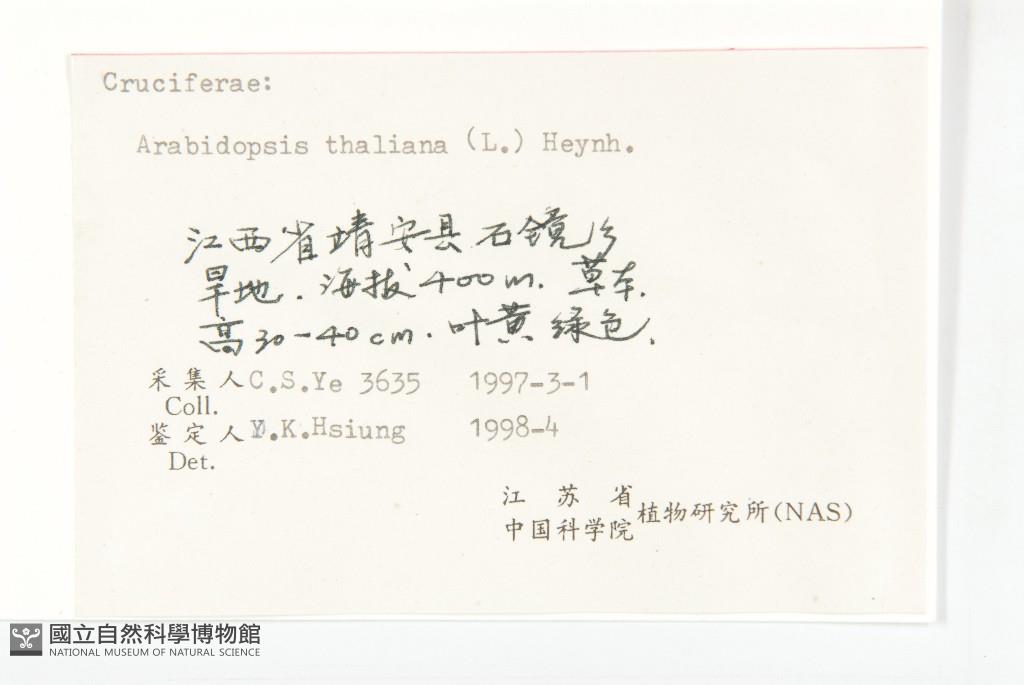 Cruciferae:
Arabidopsis thaliana (L.) Heynh.
江西省靖安县石镜乡
旱地. 海拔400m. 草本.
高30-40cm. 叶黄绿色.
采集人 C.S.Ye 3635 1997-3-1
Coll.
鉴定人 Y.K.Hsiung 1998-4
Det.
江苏省
中国科学院 植物研究所(NAS)
國立自然科學博物館
NATIONAL MUSEUM OF NATURAL SCIENCE